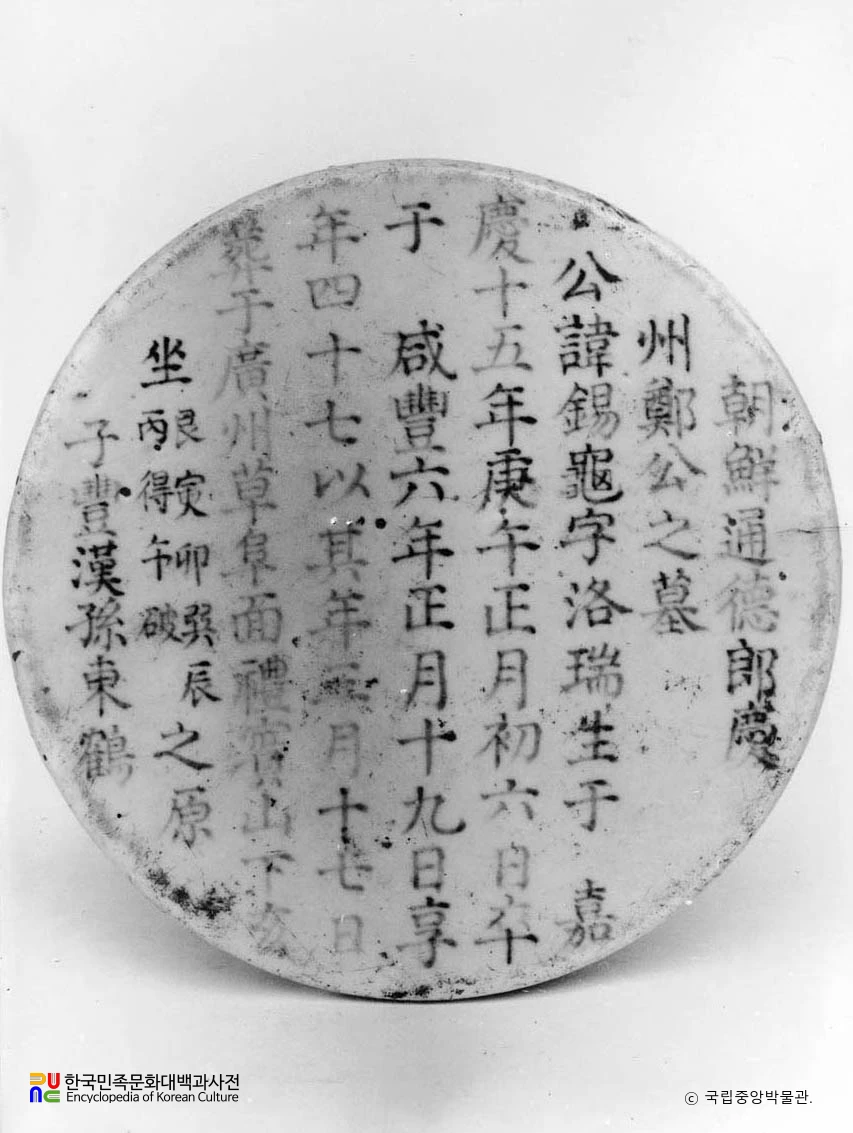 朝鮮通德郎慶
州鄭公之墓
公諱錫龜字洛瑞生于 嘉
慶十五年庚午正月初六日卒
于 咸豐六年正月十九日享
年四十七以其年三月十七日
葬于廣州草阜面禮賓山下亥
坐艮寅卯巽辰丙得午破之原
子豐漢孫東鶴
한국민족문화대백과사전
Encyclopedia of Korean Culture
ⓒ 국립중앙박물관.